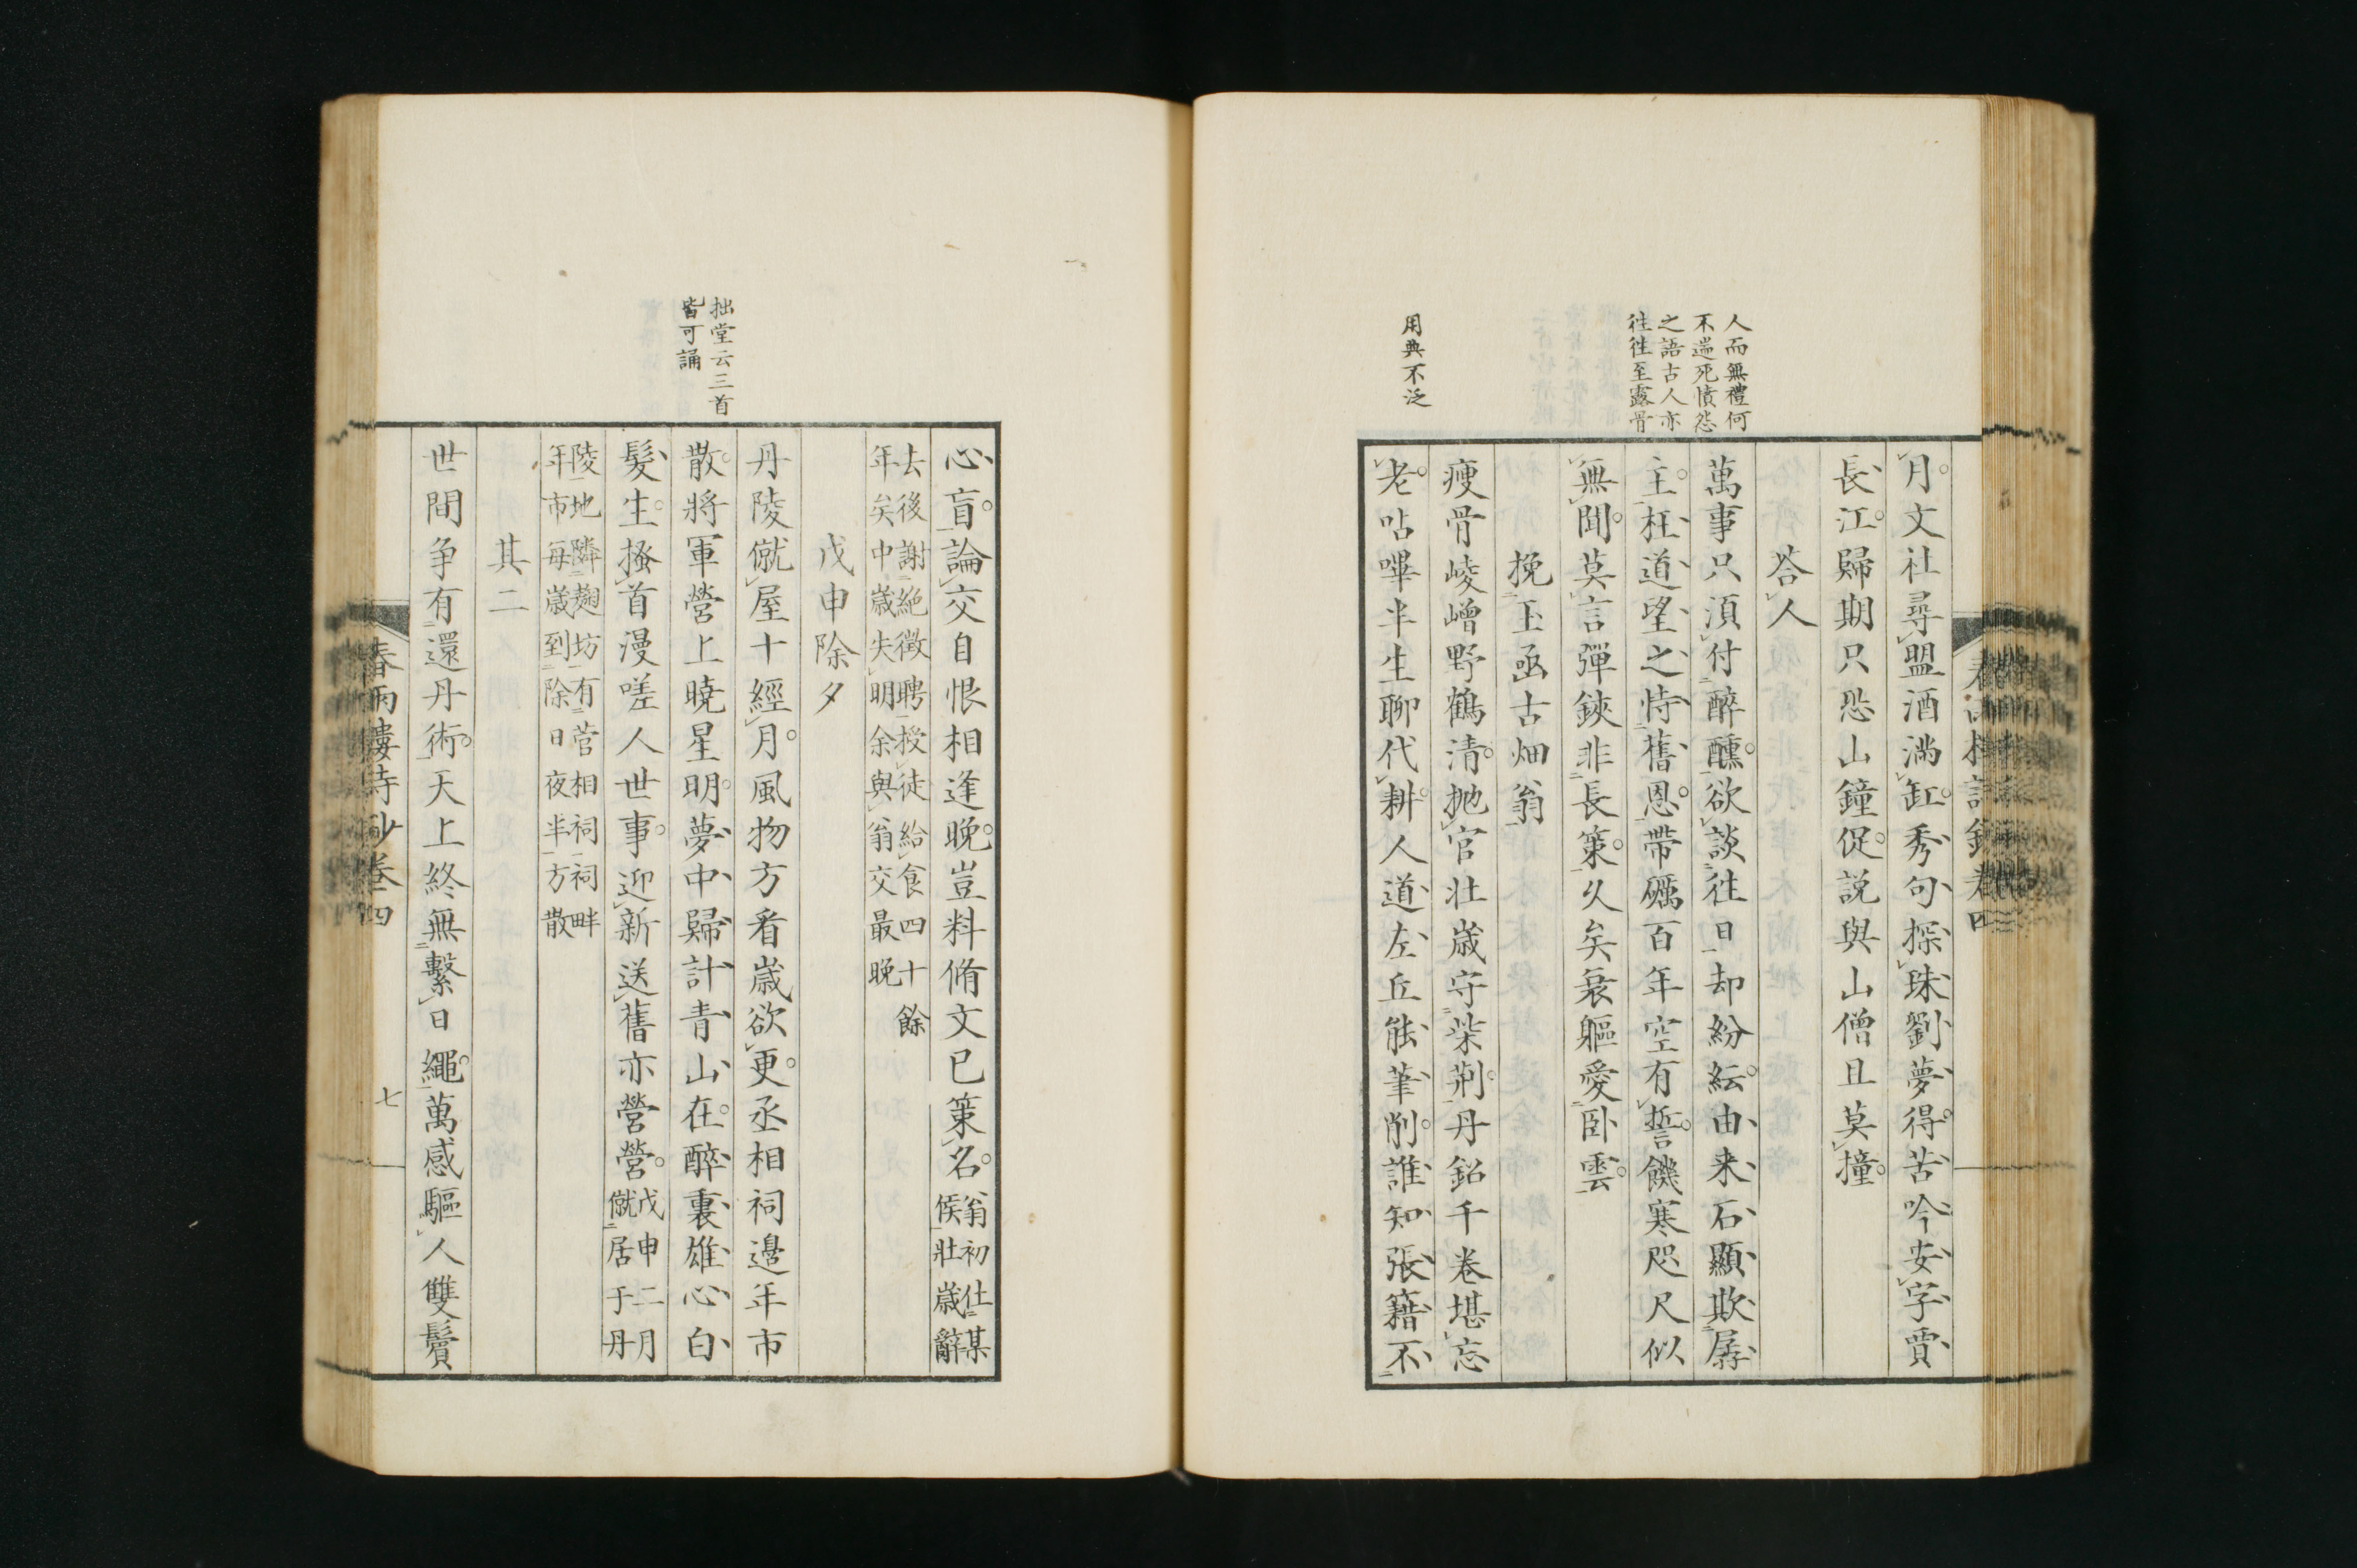 人而無禮何
不遄死憤怨
之語古人亦
往往至露骨
用典不泛
月文社尋盟酒滿缸秀句探珠劉夢得苦吟安字賈
長江歸期只恐山鐘促説與山僧且莫撞
荅人
萬事只須付醉醺欲談往日却紛紜由来石顯欺孱
主枉道望之恃舊恩帶礪百年空有誓饑寒咫尺似
無聞莫言彈鋏非長策久矣衰軀愛卧雲
挽玉函古畑翁
瘦骨崚嶒野鶴清抛官壮歳守柴荆丹鉛千卷堪忘
老呫嗶半生聊代耕人道左丘能筆削誰知張籍不
拙堂云三首
皆可誦
心盲論交自恨相逢晚豈料脩文已策名翁初仕某
侯壯歳辭
去後謝絶徵聘授徒給食四十餘
年矣中歳失明余與翁交最晚
戊申除夕
丹陵僦屋十經月風物方看歳欲更丞相祠邊年市
散將軍營上曉星明夢中歸計青山在醉裏雄心白
髮生搔首漫嗟人世事迎新送舊亦營營戊申二月
僦居于丹
陵地隣麹坊有菅相祠祠畔
年市毎歳到除日夜半方散
其二
世間争有還丹術天上終無繫日繩萬感驅人雙鬢
春雨樓詩鈔卷四
七